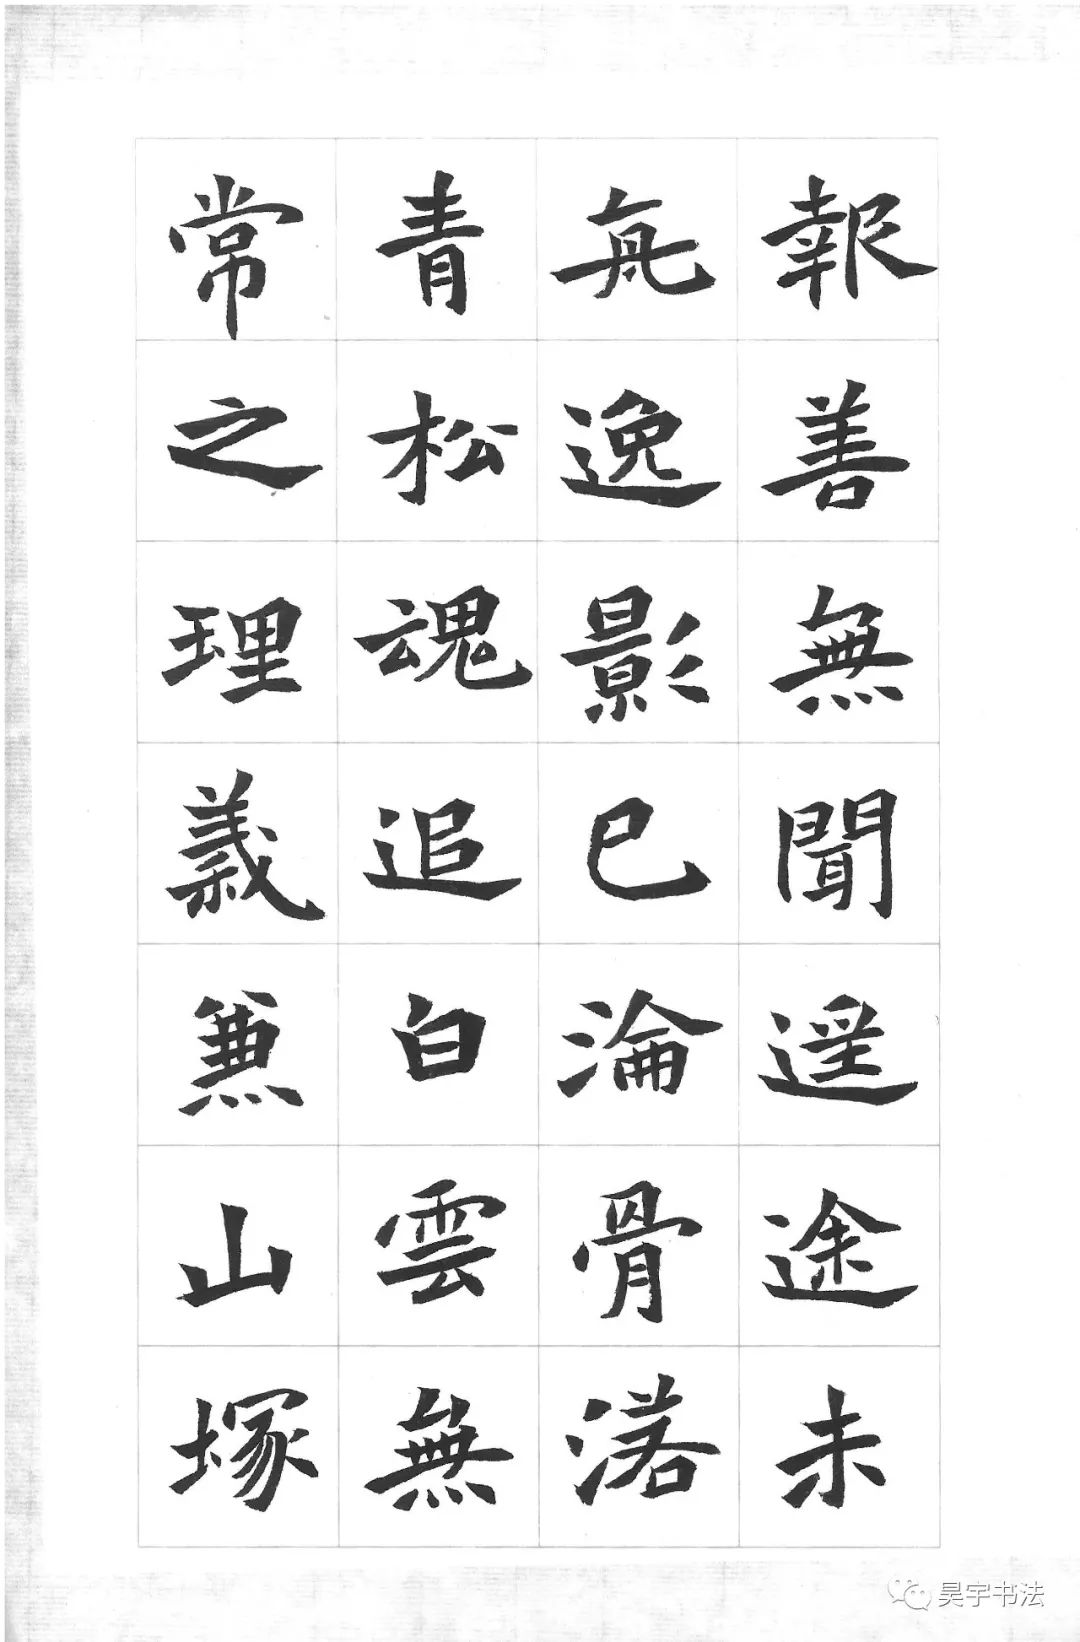 報善無聞遥途未
𠕋逸影已淪骨落
青松魂追白雲無
常之理義兼山塚
昊宇书法